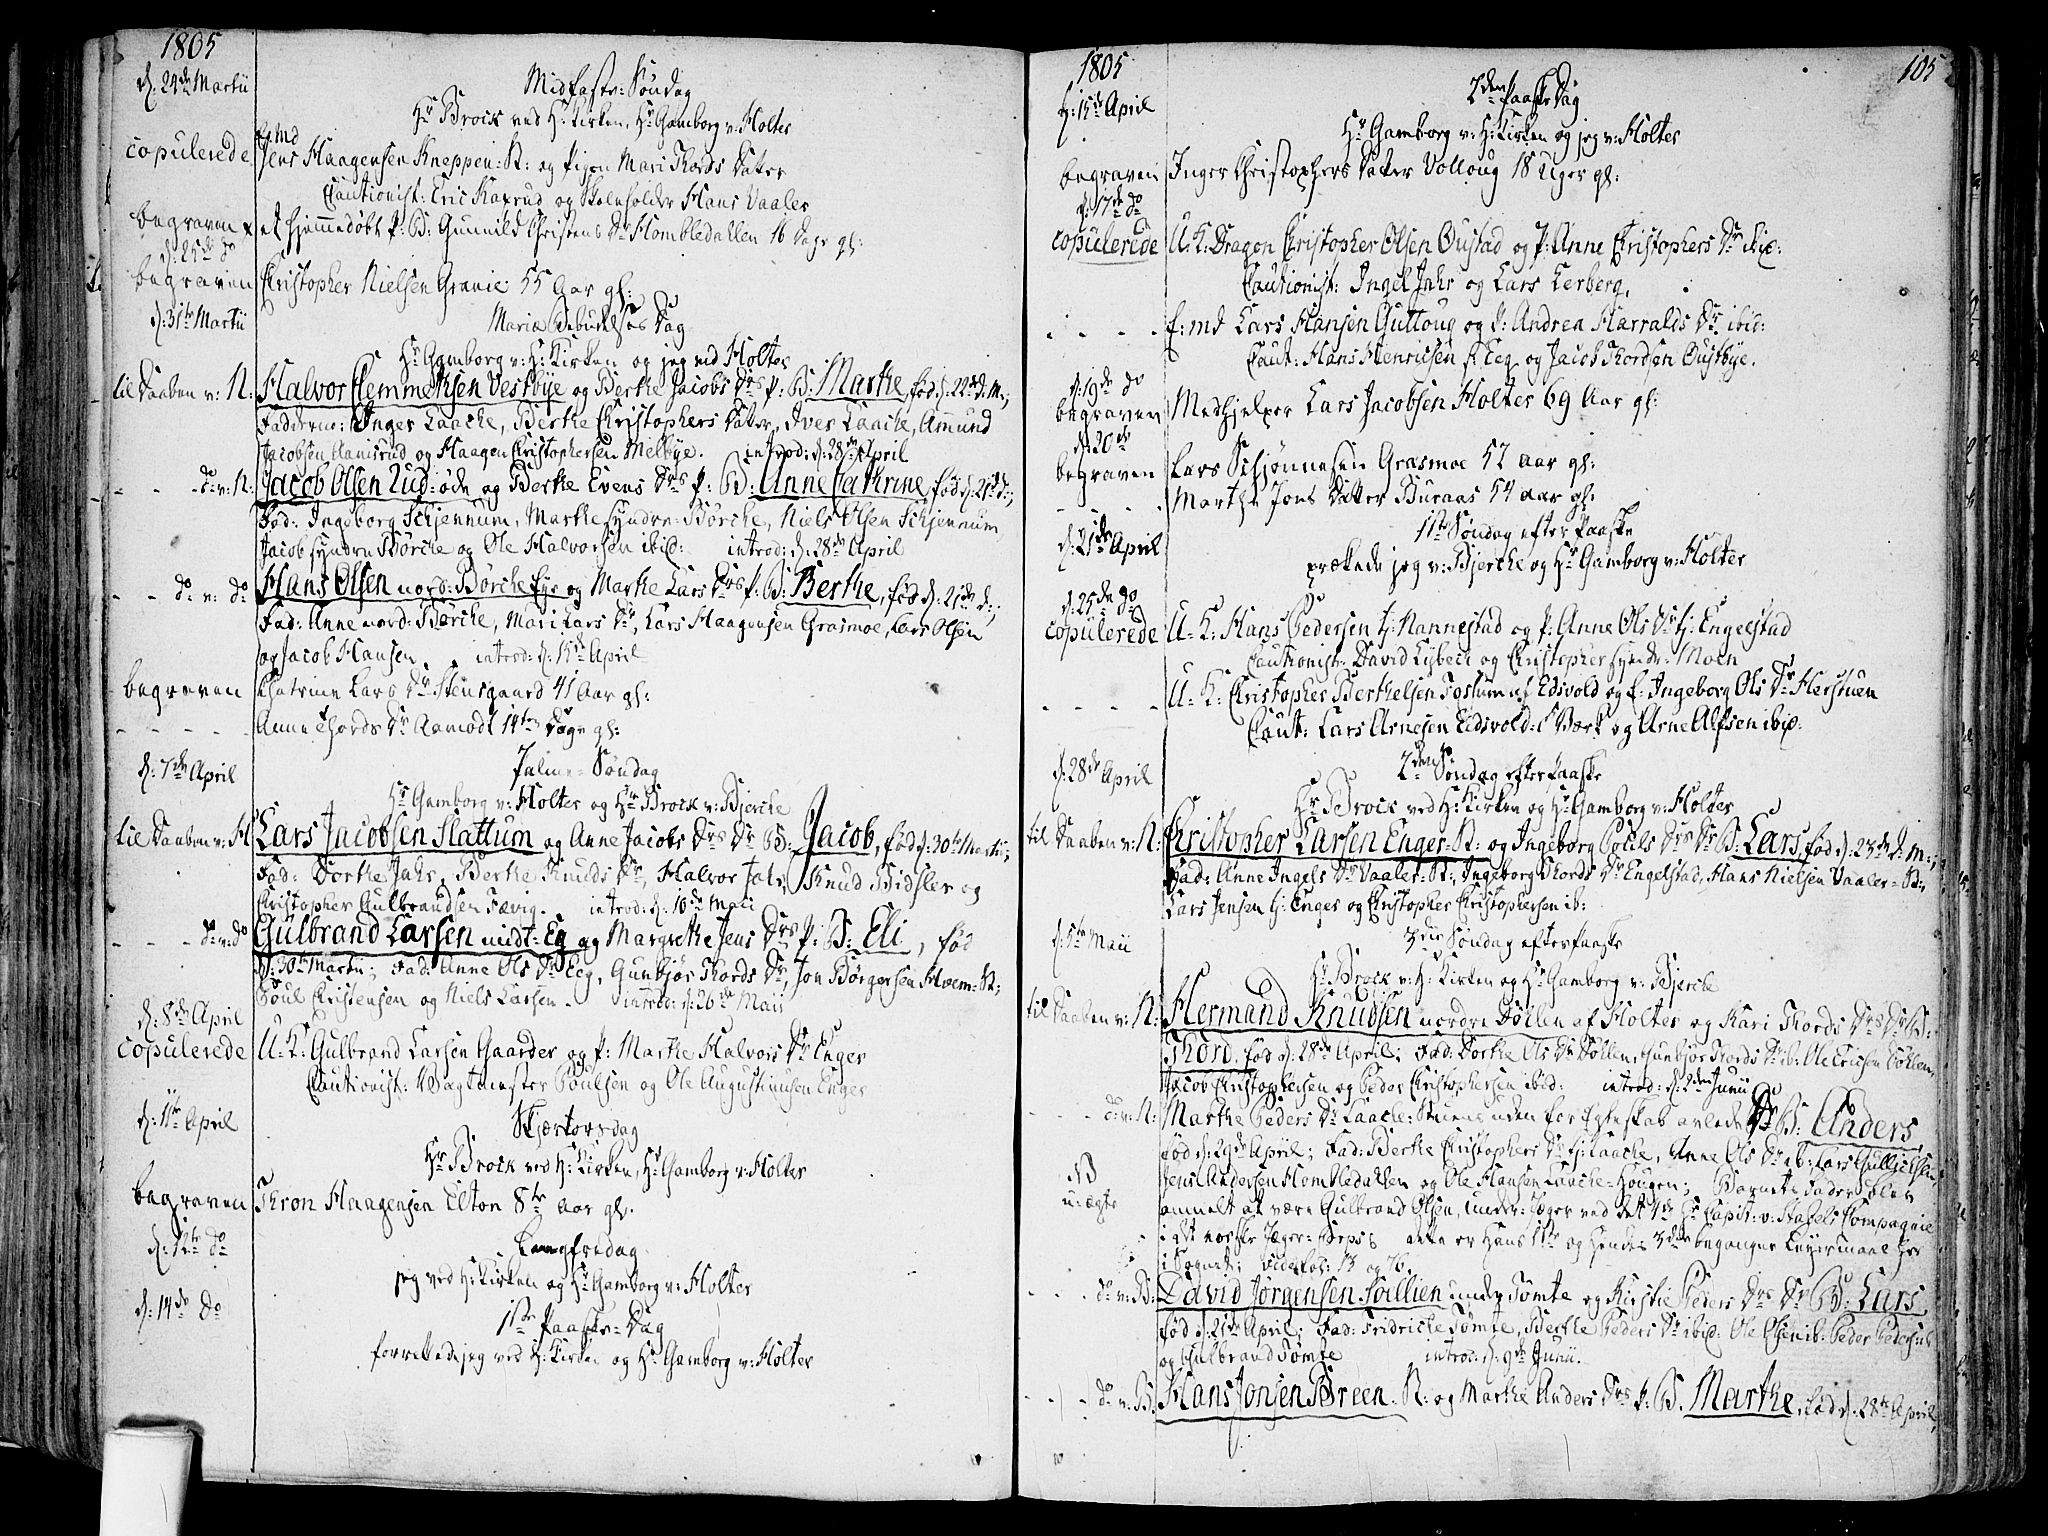 1805
d. 24de Martii
Midfaste-Søndag
Hr Brock ved H: Kirken, Hr Gamborg v: Holter
copulerede
E: md
Jens Haagensen Kneppen-Et: og Pigen Mari Thords Datter
Cautionist: Eric Kaxrud og Skoleholder Hans Vaaler
begraven
et hjemmedøbt p: B: Gunnild Christens Dr Hombledahlen 16 Dage gl:
d: 25de do
begraven
Christopher Nielsen Gravie 55 Aar gl:
d: 31te Martii
Mariæ Bebudelses Dag
Hr Gamborg v: H: Kirken og jeg ved Holter
til Daaben v: N:
Halvor Clemmethsen Vestbye og Berthe Jacobs Drs p: B: Marthe, fød d: 22de d: M:;
Fadderne: Inger Laache, Berthe Christophers Datter, Iver Laache, Amund
Jacobsen Aamsrud og Haagen Christophersen Melbye. introd: d: 28de April
- - - do v: N:
Jacob Olsen Rud-øde og Berthe Evens Drs p: B: Anne Cathrine, fød d: 21de d:;
Fad: Ingeborg Schjennum, Marthe syndre-Børche, Niels Olsen Schjennum
Jacob syndre Børche og Ole Halvorsen ibid: introd: d: 28de April
- - do v: do
Hans Olsen nord: Børche Eye og Marthe Lars Drs p: B: Berthe, fød d: 21de d:;
Fad: Anne nord: Børche, Mari Lars Dr, Lars Haagensen Grasmoe, Lars Olsen
og Jacob Hansen. introd: d: 15de April
begraven
Chatrine Lars Dr Stensgaard 41 Aar gl:
- - - - -
Anne Thords Dr Aamodt 14ten Dage gl:
d: 7de April
Palme-Søndag
Hr Gamborg v: Holter og Hr Brock v: Bjerche
til Daaben v: H
Lars Jacobsen Slattum og Anne Jacobs Drs Dr B: Jacob, fød d: 30te Martii;
Fad: Dorthe Jahr, Berthe Knuds Dr, Halvor Jahr, Knud Bidsler og
Christopher Gulbrandsen Fævig. introd: d: 10de Maii
- - - do v: do
Gulbrand Larsen midt-Eg og Margrethe Jens Drs p: B: Eli, fød
d: 30te Martii; Fad: Anne Ols Dr Eeg, Gunbjør Thords Dr, Jon Børgersen Hvem-Et:
Poul Christensen og Niels Larsen. introd: d: 26de Maii
d: 8de April
copulerede
U: K: Gulbrand Larsen Gaarder og p: Marthe Halvors Dr Enger
Cautionist: Vagtmester Poulsen og Ole Augustinusen Enger
d: 11te April
Skjærtorsdag
Hr Brock ved H: Kirken, Hr Gamborg v: Holter
begraven
Thron Haagensen Elton 8te Aar gl:
d: 12te do
Langfredag
jeg ved H: Kirken og Hr Gamborg v: Holter
d: 14de do
1ste Paaske-Dag
forrettede jeg ved H: Kirken og Hr Gamborg v: Holter
1805
105
d: 15de April
2den Paaske Dag
Hr Gamborg v: H: Kirken og jeg v: Holter
begraven
Inger Christophers Datter Volloug 18 Uger gl:
d: 17de do
copulerede
U: K: Dragon Christopher Olsen Bustad og P: Anne Christophers Dr ibid:
Cautionist: Ingel Jahr og Lars Lerberg.
- - - -
E: md Lars Hansen Guttoug og P: Andrea Harralds Dr ibid:
Caut: Hans Henricsen s: Eeg og Jacob Thordsen Bustbye.
d: 19de do
begraven
Medhjelper Lars Jacobsen Holter 69 Aar gl:
d: 20de
begraven
Lars Schjønnesen Grasmoe 52 Aar gl:
- - - -
Marthe Jons Datter Buraas 54 Aar gl:
d: 21de April
1ste Søndag efter Paaske
prækede jeg v: Bjerche og Hr Gamborg v: Holter
d: 25de do
copulerede
U: K: Hans Pedersen tj: Nannestad og p: Anne Ols Dr tj: Engelstad
Cautionist: David Lybeck og Christopher syndr: Moen
- - - -
U: K: Christopher Berthelsen Tosium af Edsvold og E: Ingeborg Ols Dr Herstuen
Caut: Lars Arnesen Eidsvold:s Værk og Arne Alfsen ibid:
d: 28de April
2den Søndag efter Paaske
Hr Brock ved H: Kirken og Hr Gamborg v: Holter
til Daaben v: N:
Christopher Larsen Enger-Et: og Ingeborg Povels Drs Dr B: Lars, fød d: 23de d: m:;
Fad: Anne Ingels Dr Vaaler-Et:, Ingeborg Thords Dr Engelstad, Hans Nielsen Vaaler-Et:,
Lars Jensen tj: Enger og Christopher Christophersen ib:
d: 5te Maii
3die Søndag efter Paaske
Hr Brock v: H: Kirken og Hr Gamborg v: Bjerche
til Daaben v: N:
Hermand Knudsen nordre Døllen af Holter og Kari Thords Drs Dr B:
Thord, fød d: 28de April; Fad: Dorthe Ols Dr Døllen, Gunbjør Thords Dr ib: Ole Ericsen Døllen,
Jacob Christophersen og Peder Christophersen ibid: introd: d: 2den Junii
- - - do v: N:
Marthe Peders Dr Laache-Stuens uden for Egteskab avlede Dr B: Anders
fød d: 29de April; Fad: Berthe Christophers Dr tj: Laache, Anne Ols Dr ib: Lars Gullichsen,
NB
u-ægte
Jens Andersen Hombledahlen og Ole Hansen Laache-Hougen; Barnets Fader blev
anmelt at være Gulbrand Olsen, under-Jæger ved det Hr Capit: v: Stabels Compagnie
i det norske Jæger-Corps dette er Hans 1ste og Hendes 3die begangne Leyermaal her
i Sognet; vide fol: 13 og 76.
- - - do v: B:
David Jørgensen Soillien under Tømte og Kirstie Peders Drs Dr B: Lars,
fød d: 21de April; Fad: Fridriche Tømte, Berthe Peders Dr ibid: Ole Olsen ib: Peder Pedersen
og Gulbrand Tømte introd: d: 9de Junii.
- - - do v: B:
Hans Jonsen Breen-Et: og Marthe Anders Drs p: B: Marthe, fød d: 28te April,